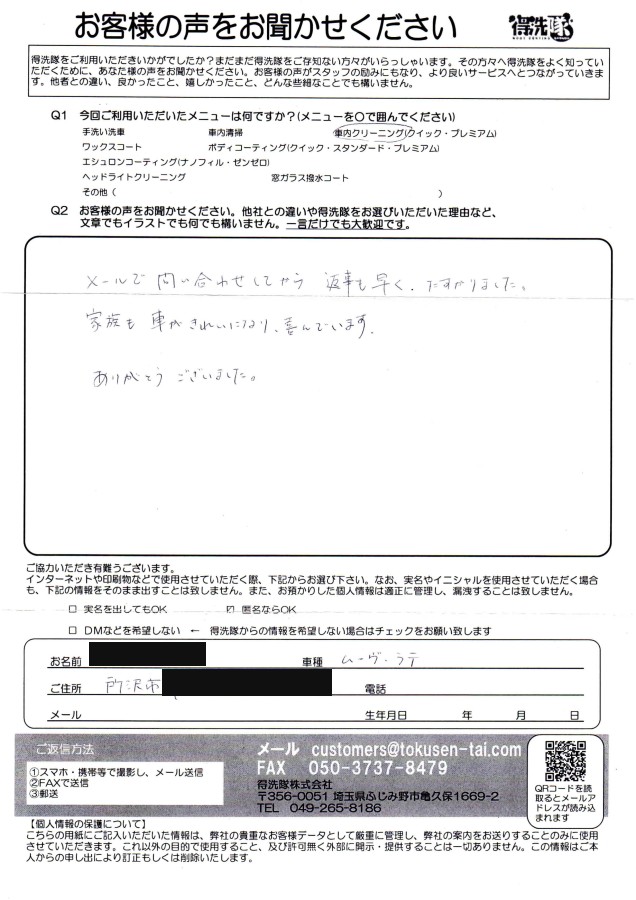 お客様の声をお聞かせください
得洗隊
得洗隊をご利用いただきいかがでしたか？まだまだ得洗隊をご存知ない方々がいらっしゃいます。その方々へ得洗隊をよく知って
いただくために、あなた様の声をお聞かせください。お客様の声がスタッフの励みにもなり、より良いサービスへとつながっていきま
す。他者との違い、良かったこと、嬉しかったこと、どんな些細なことでも構いません。
Q1 今回ご利用いただいたメニューは何ですか？(メニューを〇で囲んでください)
手洗い洗車 車内清掃 車内クリーニング(クイック・プレミアム)
ワックスコート ボディコーティング(クイック・スタンダード・プレミアム)
エシュロンコーティング(ナノフィル・ゼンゼロ)
ヘッドライトクリーニング 窓ガラス撥水コート
その他（ ）
Q2 お客様の声をお聞かせください。他社との違いや得洗隊をお選びいただいた理由など、
文章でもイラストでも何でも構いません。一言だけでも大歓迎です。
メールで問い合わせしてから 返事も早く、たすかりました。
家族も 車がきれいになり、喜んでいます。
ありがとう ございました。
ご協力いただき有難うございます。
インターネットや印刷物などで使用させていただく際、下記からお選び下さい。なお、実名やイニシャルを使用させていただく場合
も、下記の情報をそのまま出すことは致しません。また、お預かりした個人情報は適正に管理し、漏洩することは致しません。
□ 実名を出してもOK ☑ 匿名ならOK
□ DMなどを希望しない ← 得洗隊からの情報を希望しない場合はチェックをお願い致します
お名前 車種 ムーヴ・ラテ
ご住所 所沢市 電話
メール 生年月日 年 月 日
ご返信方法
①スマホ・携帯等で撮影し、メール送信
②FAXで送信
③郵送
メール customers@tokusen-tai.com
FAX 050-3737-8479
得洗隊株式会社
〒356-0051 埼玉県ふじみ野市亀久保1669-2
TEL 049-265-8186
QRコードを読
取るとメールア
ドレスが読み込
まれます
【個人情報の保護について】
こちらの用紙にご記入いただいた情報は、弊社の貴重なお客様データとして厳重に管理し、弊社の案内をお送りすることのみに使用
させていただきます。これ以外の目的で使用すること、及び許可無く外部に開示・提供することは一切ありません。この情報はご本
人からの申し出により訂正もしくは削除いたします。